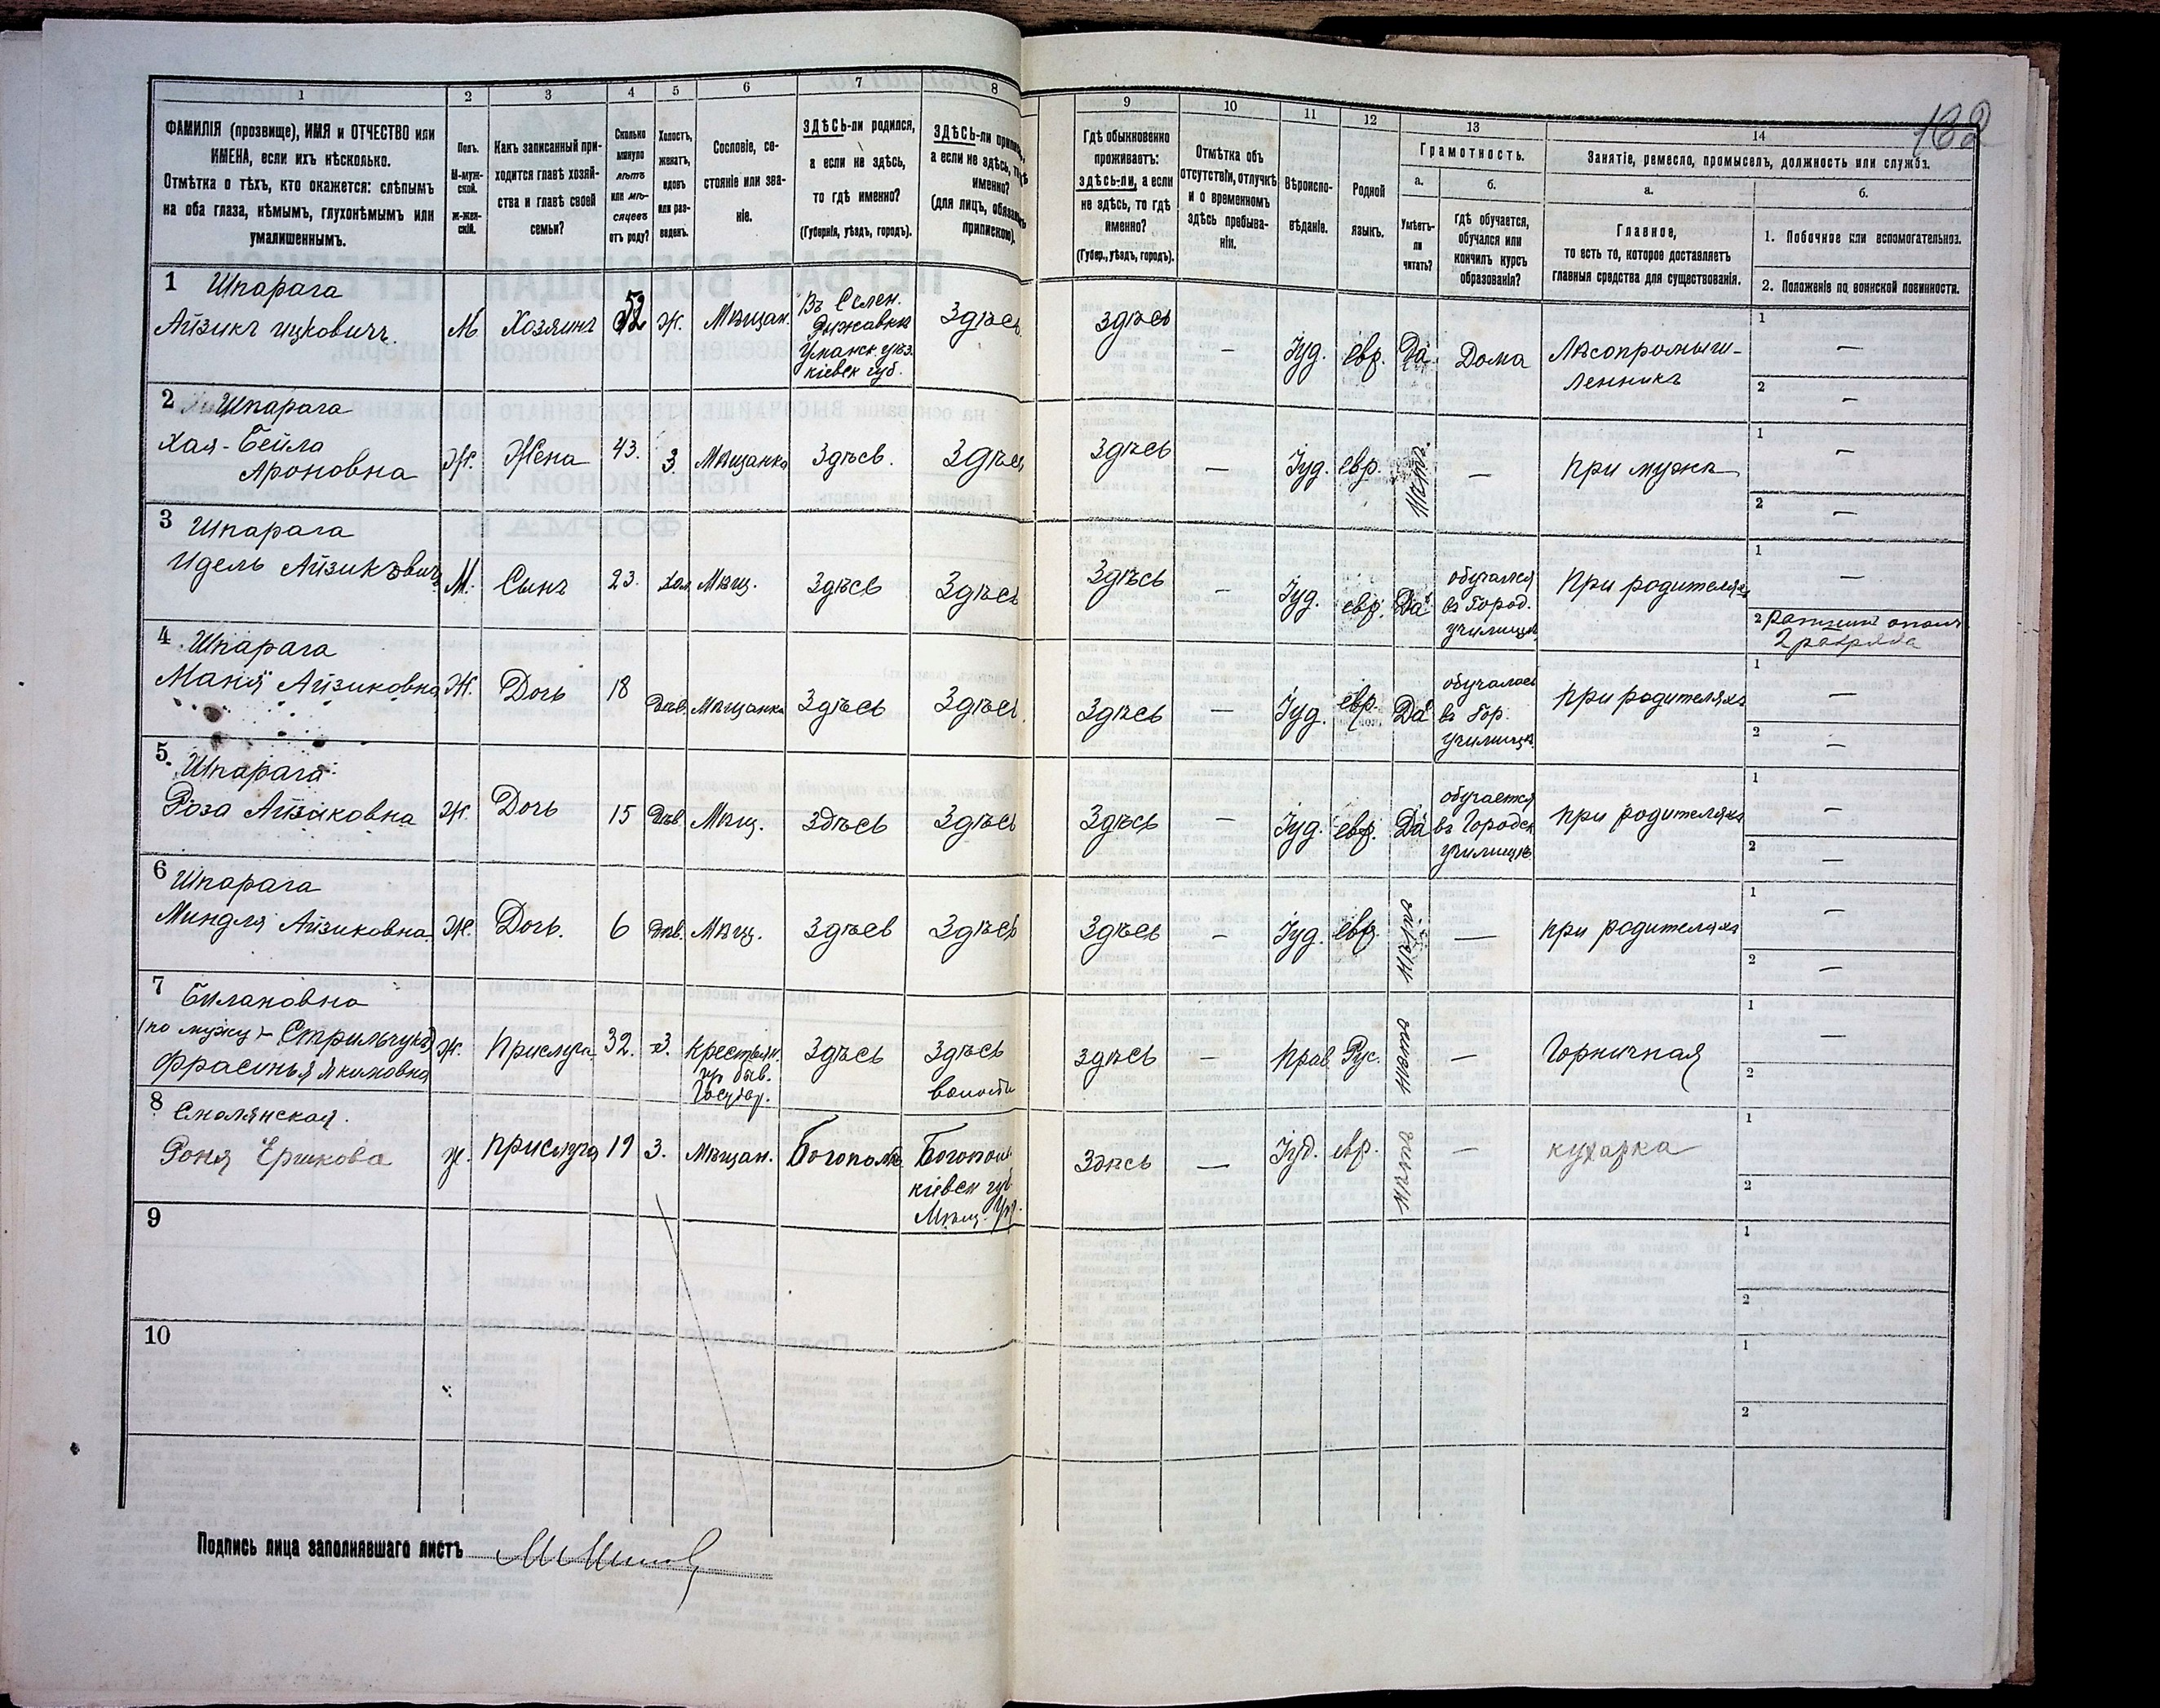 162
1 2 3 4 5 6 7 8 9 10 11 12 13 14
ФАМИЛІЯ (прозвище), ИМЯ и ОТЧЕСТВО или
ИМЕНА, если ихъ нѣсколько.
Отмѣтка о тѣхъ, кто окажется: слѣпымъ
на оба глаза, нѣмымъ, глухонѣмымъ или
умалишеннымъ.
Полъ.
М-муж-
ской.
ж-жен-
скій.
Какъ записанный при-
ходится главѣ хозяй-
ства и главѣ своей
семьи?
Сколько
минуло
лѣтъ
или мѣ-
сяцевъ
отъ роду?
Холостъ,
женатъ,
вдовъ
или раз-
веденъ.
Сословіе, со-
стояніе или зва-
ніе.
ЗДѢСЬ-ли родился,
а если не здѣсь,
то гдѣ именно?
(Губернія, уѣздъ, городъ).
ЗДѢСЬ-ли
а если не здѣсь,
именно?
(для лицъ,
припискою).
Гдѣ обыкновенно
проживаетъ:
здѣсь-ли, а если
не здѣсь, то гдѣ
именно?
(Губер., уѣздъ, городъ).
Отмѣтка объ
отсутствіи, отлучкѣ
и о временномъ
здѣсь пребыва-
ніи.
Вѣроиспо-
вѣданіе.
Родной
языкъ.
Грамотность.
а.
Умѣетъ-
ли
читать?
б.
Гдѣ обучается,
обучался или
кончилъ курсъ
образованія?
Занятіе, ремесло, промыселъ, должность или служба.
а.
Главное,
то есть то, которое доставляетъ
главныя средства для существованія.
б.
1. Побочное или вспомогательное.
2. Положеніе по воинской повинности.
1 Шпарага
Айзикъ Ицковичъ. М. Хозяинъ 52 Ж. Мѣщан.
Въ Селен.
Державки
Уманск. уѣз.
Кіевск губ.
Здѣсь здѣсь — Іуд. евр. Да. Дома
Лѣсопромыш-
ленникъ
1 —
2 —
2 Шпарага
Хая-Бейла
Ароновна Ж. Жена 43. З. Мѣщанка Здѣсь. Здѣсь Здѣсь — Іуд. евр. Нѣтъ. — При мужѣ
1 —
2 —
3 Шпарага
Идель Айзиковичъ М. Сынъ 23. хол Мѣщ. Здѣсь Здѣсь Здѣсь — Іуд. евр. Да
обучался
въ Город.
училищѣ
При родителяхъ
1 —
2 Ратникъ ополч
2 разряда
4 Шпарага
Маня Айзиковна Ж. Дочь 18 Дѣв. Мѣщанка Здѣсь Здѣсь. Здѣсь — Іуд. евр. Да
обучалась
въ Гор.
училищѣ
при родителяхъ
1 —
2 —
5 Шпарага
Роза Айзиковна Ж. Дочь 15 Дѣв Мѣщ. здѣсь Здѣсь Здѣсь — Іуд. евр. Да
обучается
въ Городск
училищѣ
при родителяхъ
1 —
2 —
6 Шпарага
Миндля Айзиковна. Ж. Дочь. 6 Дѣв. Мѣщ. Здѣсь Здѣсь Здѣсь — Іуд. евр. нѣтъ — при родителяхъ
1 —
2 —
7 Билановна
(по мужу) - Стрильчукъ)
Фрасинья Якимовна Ж. Прислуга 32. З.
Крестьян.
из быв.
Государ.
Здѣсь
Здѣсь
волости
здѣсь — Прав Рус. — Горничная
1 —
2
8 Смолянская.
Роня Ершкова Ж. прислуга 19 З. Мѣщан. Богополь
Богопол
кіевск губ
Мѣщ. Упр.
Здѣсь — Іуд. евр. — кухарка
1
2
9
1
2
10
1
2
Подпись лица заполнявшаго листъ